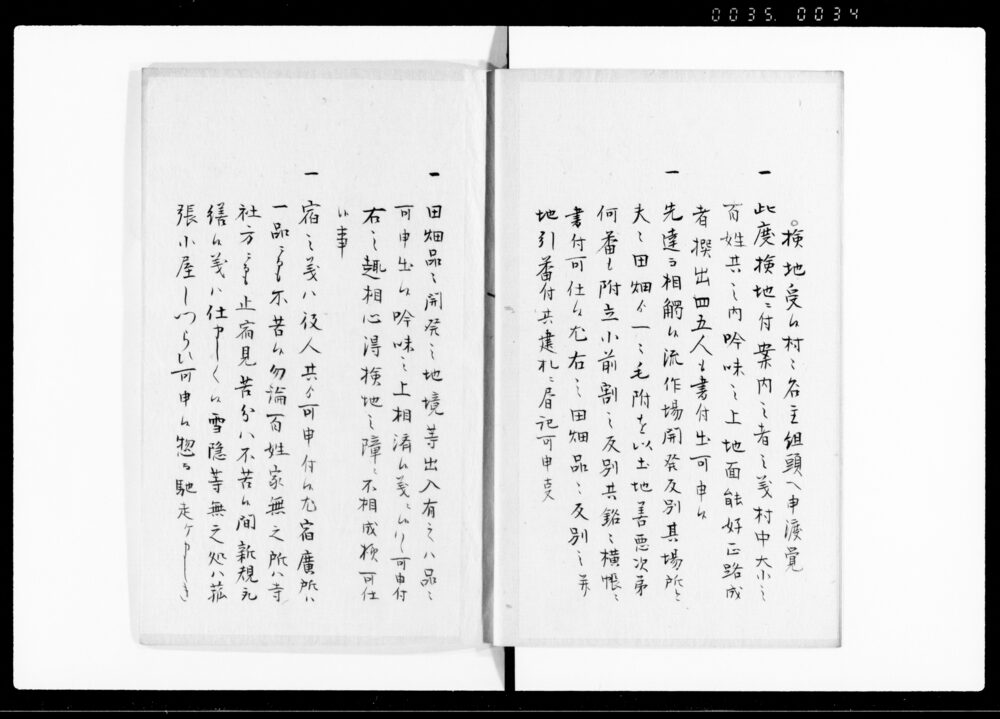 0035. 0034
。検地受候村々名主組頭へ申渡覚
一 此度検地ニ付案内之者之義村中大小之
百姓共之内吟味之上地面能好正路成
者撰出四五人も書付出可申候
一 先達而相触候流作場開発反別其場所之
夫々田畑ゟ一之毛附を以土地善悪次第
何番も附立小前割之反別共銘々横帳ニ
書付可仕候尤右之田畑品々反別之并
地引番付共建札ニ委記可申事
一 田畑品々開発之地境等出入有之ハ品々
可申出候吟味之上相済候義ニ候ハヽ可申付
右之趣相心得検地之障ニ不相成様可仕
候事
一 宿之義ハ役人共ゟ可申付候尤宿廣所ハ
一品ニ而も不苦候勿論百姓家無之所ハ寺
社方ニ而も止宿見苦分ハ不苦候間新規ニ
繕候義ハ仕申しく候雪隠等無之処ハ菰
張小屋しつらい可申候惣而馳走ヶ申しき